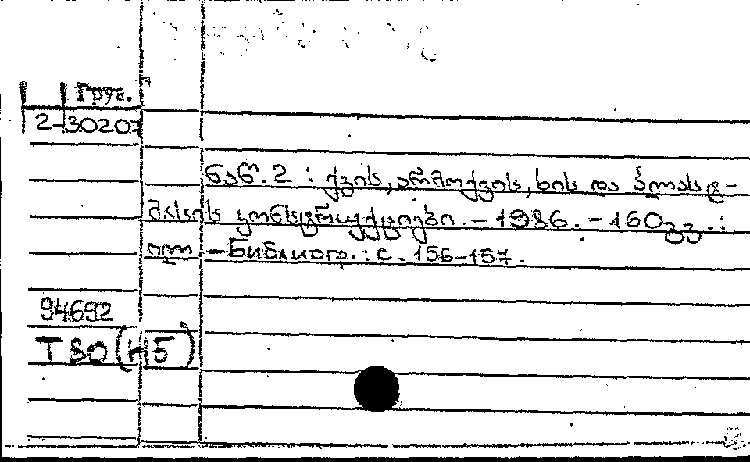 Груз.
2-30207
ნაწ. 2 : ქვის, არმოქვის, ხის და პლასტ-
მასის კონსტრუქციები. – 1986. – 160გვ. :
ილ – Библиогр.: с. 156–157.
94692
Т80(Н5)